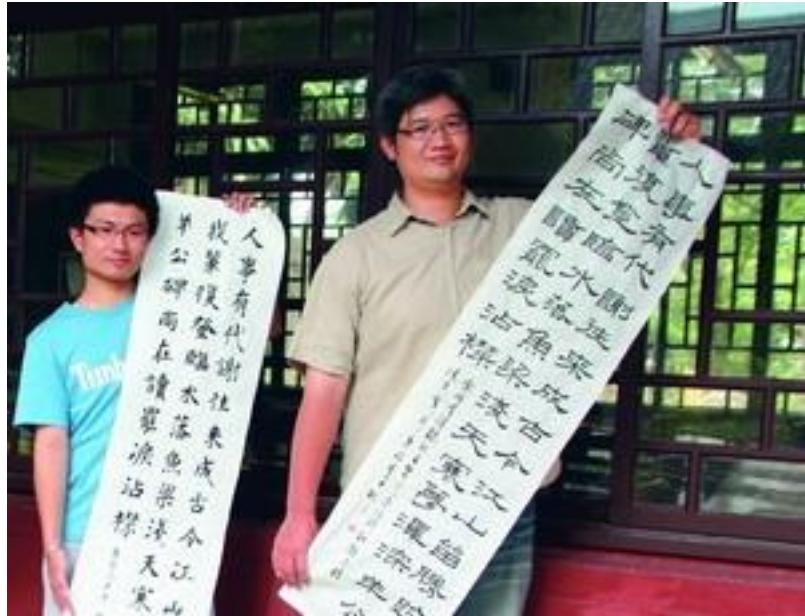 人事有代謝往來成古今江山
我輩復登臨水落魚梁淺天寒
羊公碑尚在讀罷淚沾襟
人事有代謝往來成古今江山留勝
輩復登臨水落魚梁淺天寒夢澤深羊公
碑尚在讀罷淚沾襟
Timb